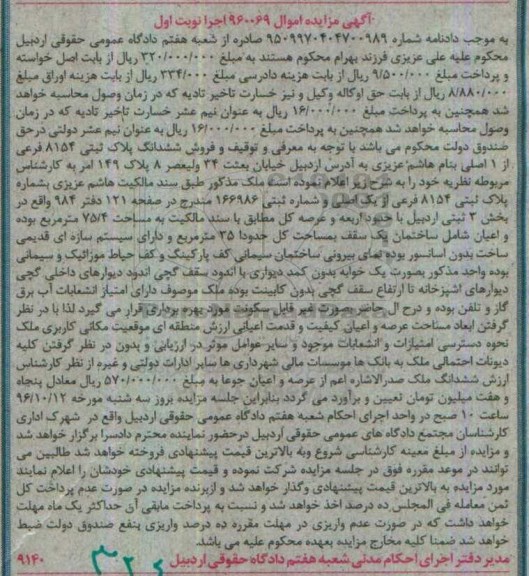 آگهی مزایده اموال ۹۶۰۰۶۹ اجرا نوبت اول
به موجب دادنامه شماره ۹۵۰۹۹۷۰۴۰۴۷۰۰۹۸۹ صادره از شعبه هفتم دادگاه عمومی حقوقی اردبیل
محکوم علیه علی عزیزی فرزند بهرام محکوم هستند به مبلغ ۳۲۰/۰۰۰/۰۰۰ ریال از بابت اصل خواسته
و پرداخت مبلغ ۹/۵۰۰/۰۰۰ ریال از بابت هزینه دادرسی مبلغ ۳۳۴/۰۰۰ ریال از بابت هزینه اوراق مبلغ
۸/۸۸۰/۰۰۰ ریال از بابت حق اوکاله وکیل و نیز خسارت تاخیر تادیه که در زمان وصول محاسبه خواهد
شد همچنین به پرداخت مبلغ ۱۶/۰۰۰/۰۰۰ ریال به عنوان نیم عشر خسارت تاخیر تادیه که در زمان
وصول محاسبه خواهد شد همچنین به پرداخت مبلغ ۱۶/۰۰۰/۰۰۰ ریال به عنوان نیم عشر دولتی درحق
صندوق دولت محکوم می باشد با توجه به معرفی و توقیف و فروش ششدانگ پلاک ثبتی ۸۱۵۴ فرعی
از ۱ اصلی بنام هاشم عزیزی به آدرس اردبیل خیابان بعثت ۳۴ ولیعصر ۸ پلاک ۱۴۹ امر به کارشناس
مربوطه نظریه خود را به شرح زیر اعلام نموده است ملک مذکور طبق سند مالکیت هاشم عزیزی بشماره
پلاک ثبتی ۸۱۵۴ فرعی از یک اصلی و شماره ثبتی ۱۶۶۹۸۶ مندرج در صفحه ۱۲۱ دفتر ۹۸۴ واقع در
بخش ۳ ثبتی اردبیل با حدود اربعه و عرصه کل مطابق با سند مالکیت به مساحت ۷۵/۴ مترمربع بوده
و اعیان شامل ساختمان یک سقف بمساحت کل حدودا ۳۵ مترمربع و دارای سیستم سازه ای قدیمی
ساخت بدون آسانسور بوده نمای بیرونی ساختمان سیمانی کف پارکینگ و کف حیاط موزائیک و سیمانی
بوده واحد مذکور بصورت یک خوابه بدون کمد دیواری با اندود سقف گچی اندود دیوارهای داخلی گچی
دیوارهای اشپزخانه تا ارتفاع سقف گچی بدون کابینت بوده ملک موصوف دارای امتیاز انشعابات آب برق
گاز و تلفن بوده و درح ال حاضر بصورت غیر قابل سکونت مورد بهره برداری قرار می گیرد لذا با در نظر
گرفتن ابعاد مساحت عرصه و اعیان کیفیت و قدمت اعیانی ارزش منطقه ای موقعیت مکانی کاربری ملک
نحوه دسترسی امتیازات و انشعابات موجود و سایر عوامل موثر در ارزیابی و بدون در نظر گرفتن کلیه
دیونات احتمالی ملک به بانک ها موسسات مالی شهرداری ها سایر ادارات دولتی و غیره از نظر کارشناس
ارزش ششدانگ ملک صدرالاشاره اعم از عرصه و اعیان جوعا به مبلغ ۵۷۰/۰۰۰/۰۰۰ ریال معادل پنجاه
و هفت میلیون تومان تعیین و برآورد می گردد بنابراین جلسه مزایده بروز سه شنبه مورخه ۹۶/۱۰/۱۲
ساعت ۱۰ صبح در واحد اجرای احکام شعبه هفتم دادگاه عمومی حقوقی اردبیل واقع در شهرک اداری
کارشناسان مجتمع دادگاه های عمومی حقوقی اردبیل درحضور نماینده محترم دادسرا برگزار خواهد شد
و مزایده از مبلغ معینه کارشناسی شروع وبه بالاترین قیمت پیشنهادی فروخته خواهد شد طالبین می
توانند در موعد مقرره فوق در جلسه مزایده شرکت نموده و قیمت پیشنهادی خودشان را اعلام نمایند
مورد مزایده به بالاترین قیمت پیشنهادی وگذار خواهد شد و ازبرنده مزایده در صورت عدم پرداخت کل
ثمن معامله فی المجلس ده درصد اخذ خواهد شد و نسبت به پرداخت مابقی آن حداکثر یک ماه مهلت
خواهد داشت که در صورت عدم واریزی در مهلت مقرره ده درصد واریزی بنفع صندوق دولت ضبط
خواهد شد ضمنا کلیه مخارج مزایده بعهده محکوم علیه می باشد.
مدیر دفتر اجرای احکام مدنی شعبه هفتم دادگاه حقوقی اردبیل ۹۱۴۰